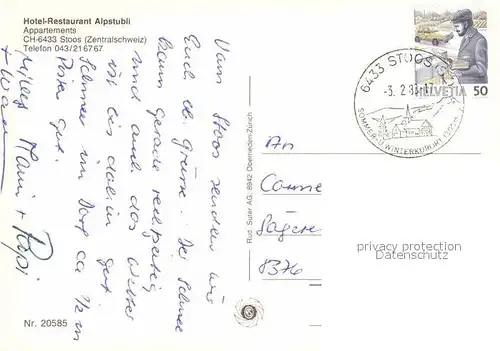 Hotel-Restaurant Alpstubli
Appartements
CH-6433 Stoos (Zentralschweiz)
Telefon 043/216767
HELVETIA 50
6433 STOOS
-3. 2.8
SOMMER- U. WINTERKURORT 1322 m
Vom Stoos senden wir
Euch lb. Grüsse. Der Schnee
kam gerade rechtzeitig
und auch das Wetter
ist bis dahin gut.
Schnee im Dorf ca ½ m
Piste gut.
Mami + Papi
An
Sägere
8376
Rud. Suter AG, 8942 Oberrieden-Zürich
Nr. 20585
privacy protection
Datenschutz